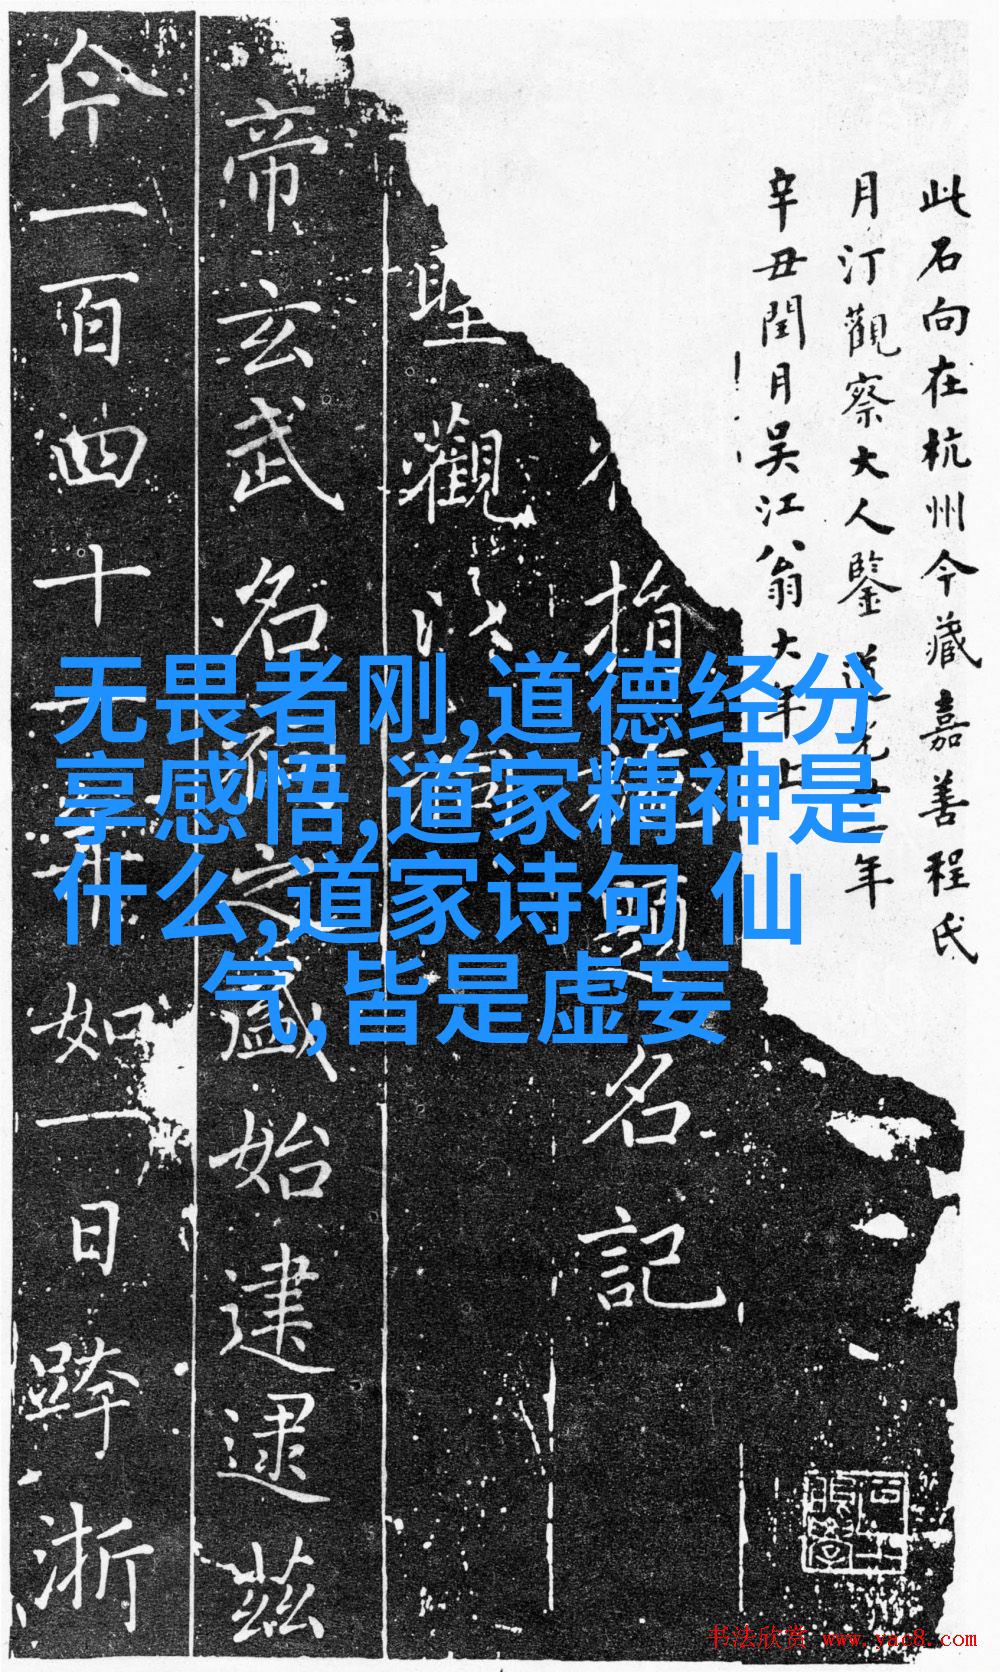 此石向在杭州今藏嘉善程氏
月汀觀察大人鑒道光廿一年
辛丑閏月吳江翁大年上
指
名記
聖觀
帝玄武名
之盛始建逮茲
今一百四十
如一日跨浙
无畏者刚,道德经分
享感悟,道家精神是
什么,道家诗句 仙
气,皆是虚妄
书法欣赏 www.yac8.com